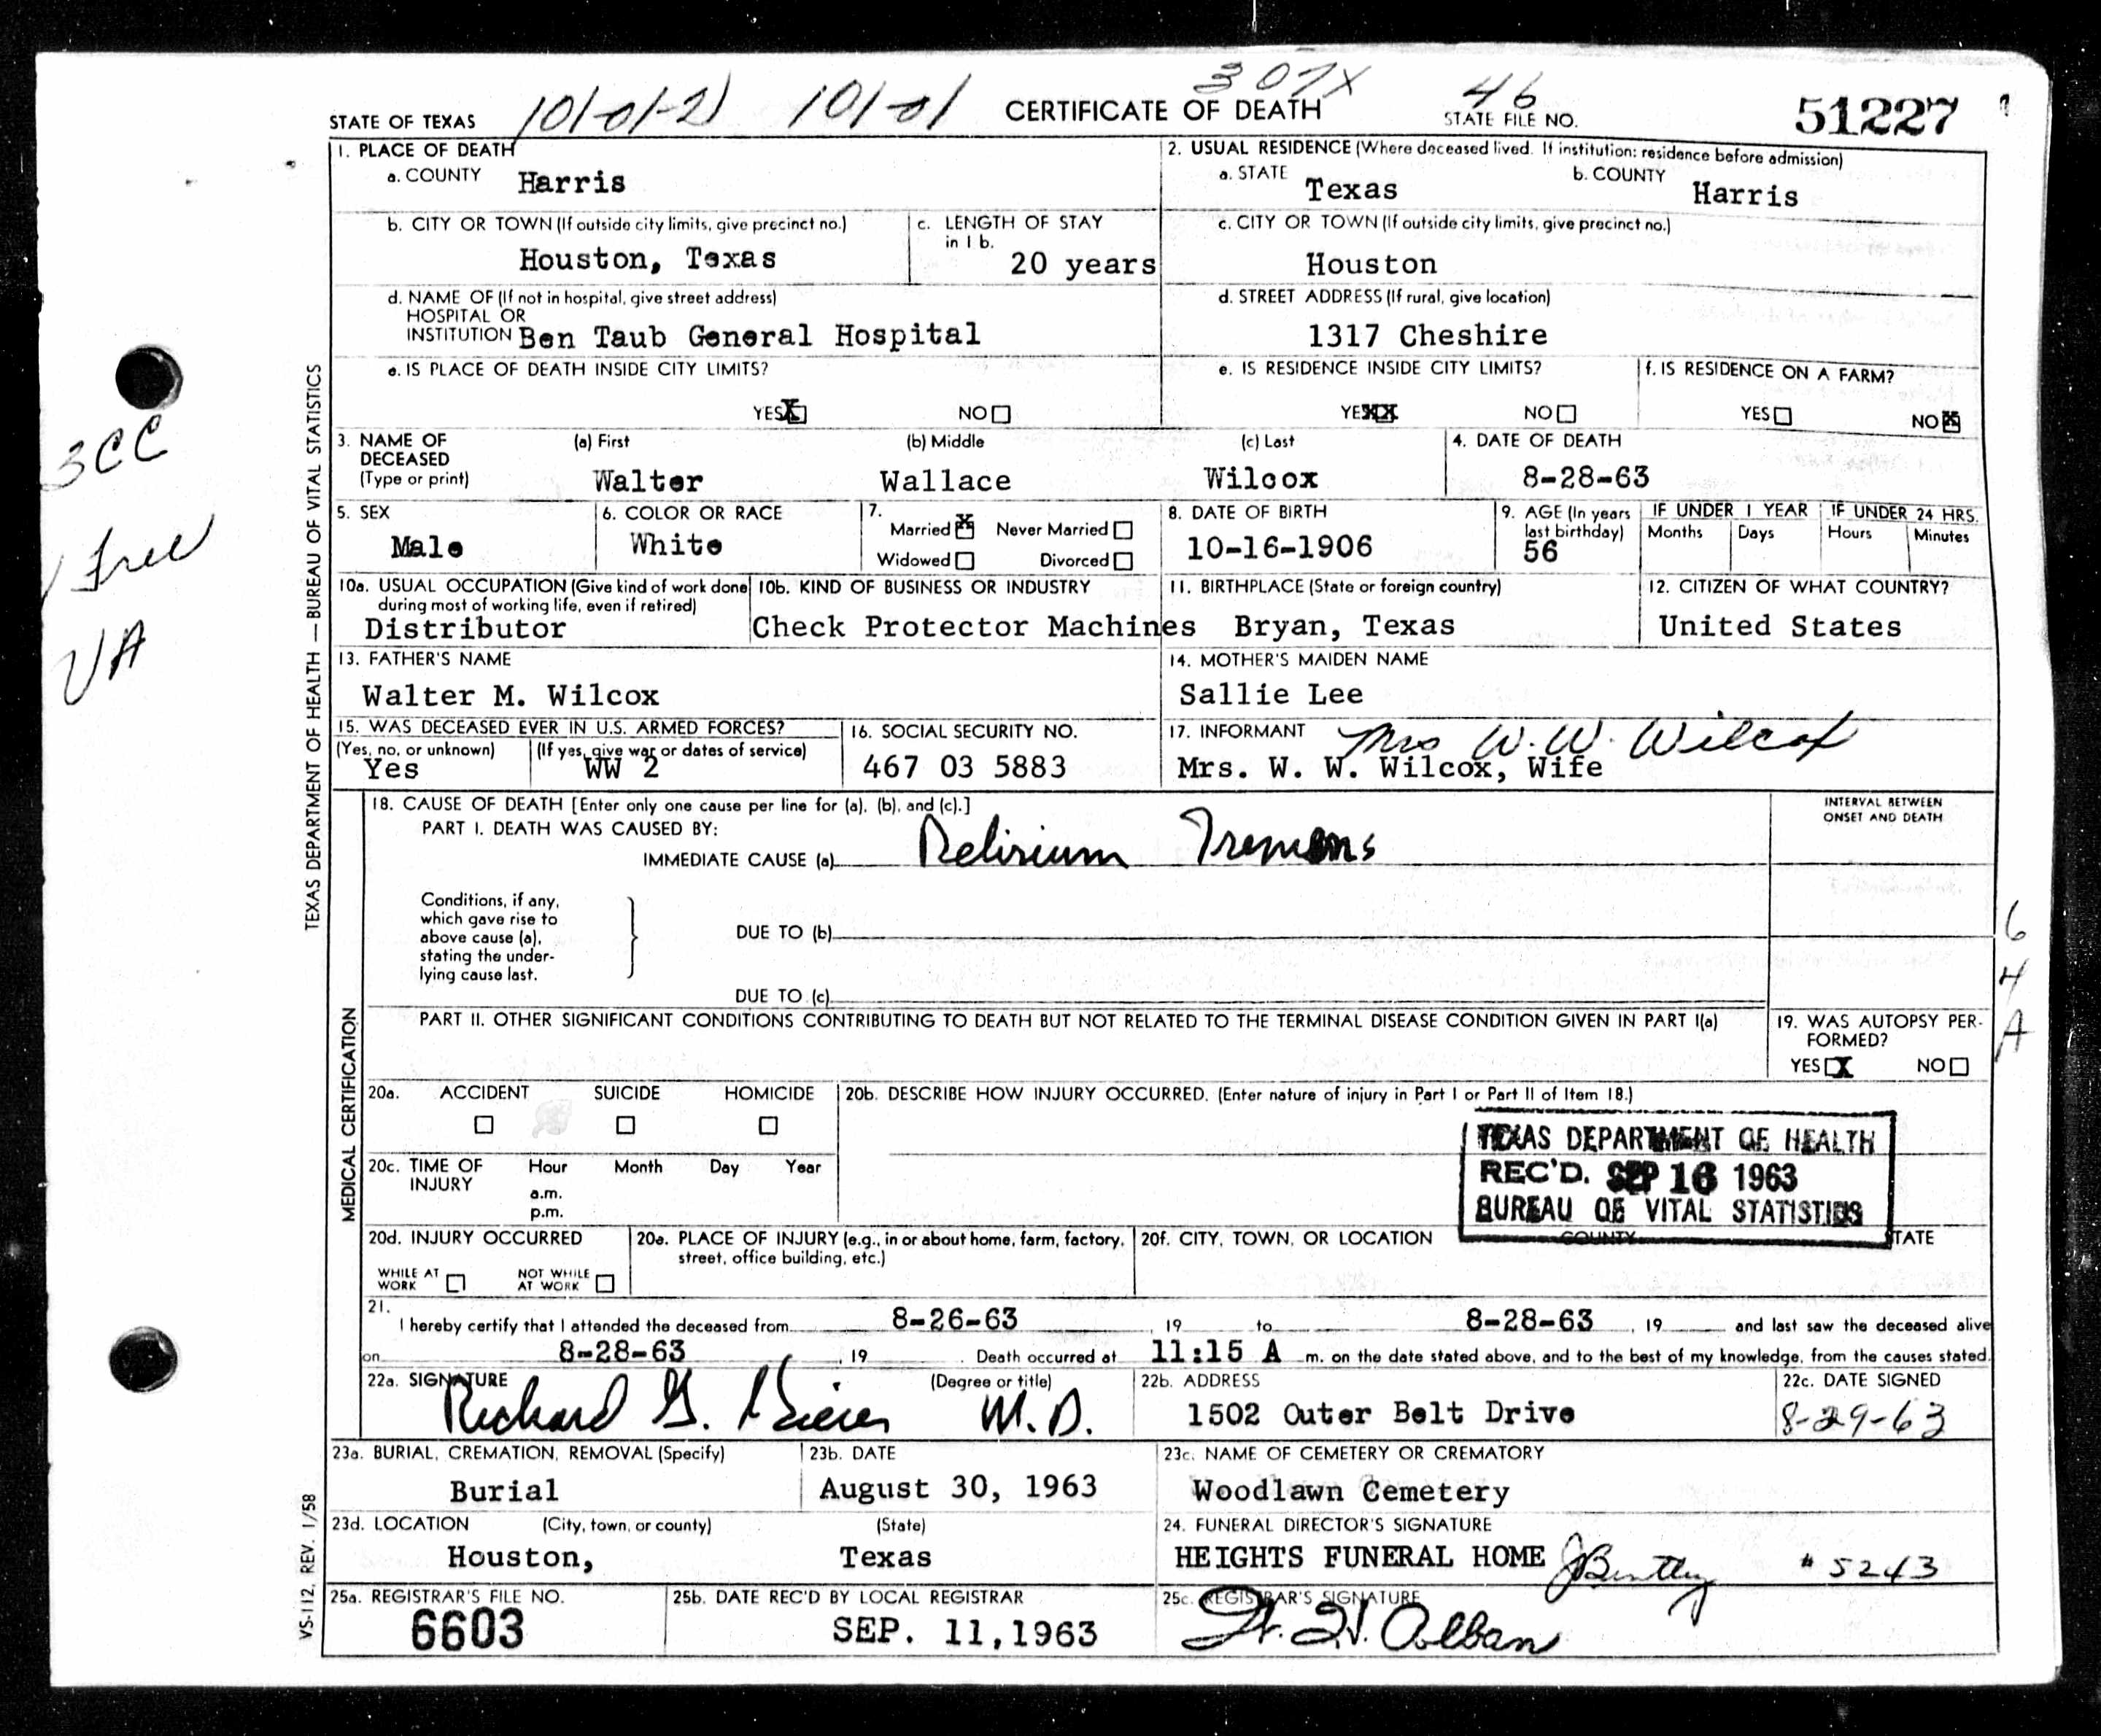 307X 46
STATE OF TEXAS 101-01-21 101-01 CERTIFICATE OF DEATH STATE FILE NO. 51227
1. PLACE OF DEATH
a. COUNTY Harris
2. USUAL RESIDENCE (Where deceased lived. If institution: residence before admission)
a. STATE Texas b. COUNTY Harris
b. CITY OR TOWN (If outside city limits, give precinct no.)
Houston, Texas
c. LENGTH OF STAY
in 1 b.
20 years
c. CITY OR TOWN (If outside city limits, give precinct no.)
Houston
d. NAME OF (If not in hospital, give street address)
HOSPITAL OR
INSTITUTION Ben Taub General Hospital
d. STREET ADDRESS (If rural, give location)
1317 Cheshire
e. IS PLACE OF DEATH INSIDE CITY LIMITS?
YES X NO
e. IS RESIDENCE INSIDE CITY LIMITS?
YES XX NO
f. IS RESIDENCE ON A FARM?
YES NO X
3. NAME OF (a) First (b) Middle (c) Last
DECEASED
(Type or print) Walter Wallace Wilcox
4. DATE OF DEATH
8-28-63
5. SEX
Male
6. COLOR OR RACE
White
7.
Married X Never Married
Widowed Divorced
8. DATE OF BIRTH
10-16-1906
9. AGE (In years
last birthday)
56
IF UNDER 1 YEAR
Months Days
IF UNDER 24 HRS.
Hours Minutes
10a. USUAL OCCUPATION (Give kind of work done
during most of working life, even if retired)
Distributor
10b. KIND OF BUSINESS OR INDUSTRY
Check Protector Machines
11. BIRTHPLACE (State or foreign country)
Bryan, Texas
12. CITIZEN OF WHAT COUNTRY?
United States
13. FATHER'S NAME
Walter M. Wilcox
14. MOTHER'S MAIDEN NAME
Sallie Lee
15. WAS DECEASED EVER IN U.S. ARMED FORCES?
(Yes, no, or unknown) (If yes, give war or dates of service)
Yes WW 2
16. SOCIAL SECURITY NO.
467 03 5883
17. INFORMANT Mrs W. W. Wilcox
Mrs. W. W. Wilcox, Wife
18. CAUSE OF DEATH [Enter only one cause per line for (a), (b), and (c).]
PART I. DEATH WAS CAUSED BY:
IMMEDIATE CAUSE (a) Delirium Tremens
INTERVAL BETWEEN
ONSET AND DEATH
Conditions, if any,
which gave rise to
above cause (a),
stating the under-
lying cause last.
DUE TO (b)
DUE TO (c)
PART II. OTHER SIGNIFICANT CONDITIONS CONTRIBUTING TO DEATH BUT NOT RELATED TO THE TERMINAL DISEASE CONDITION GIVEN IN PART I(a)
19. WAS AUTOPSY PER-
FORMED?
YES X NO
20a. ACCIDENT SUICIDE HOMICIDE
20b. DESCRIBE HOW INJURY OCCURRED. (Enter nature of injury in Part I or Part II of Item 18.)
TEXAS DEPARTMENT OF HEALTH
REC'D. SEP 16 1963
BUREAU OF VITAL STATISTICS
20c. TIME OF Hour Month Day Year
INJURY a.m.
p.m.
20d. INJURY OCCURRED
WHILE AT
WORK
NOT WHILE
AT WORK
20e. PLACE OF INJURY (e.g., in or about home, farm, factory,
street, office building, etc.)
20f. CITY, TOWN, OR LOCATION COUNTY STATE
21.
I hereby certify that I attended the deceased from 8-26-63, 19 to 8-28-63, 19 and last saw the deceased alive
on 8-28-63, 19. Death occurred at 11:15 A m. on the date stated above, and to the best of my knowledge, from the causes stated.
22a. SIGNATURE (Degree or title)
Richard G. M.D.
22b. ADDRESS
1502 Outer Belt Drive
22c. DATE SIGNED
8-29-63
23a. BURIAL, CREMATION, REMOVAL (Specify)
Burial
23b. DATE
August 30, 1963
23c. NAME OF CEMETERY OR CREMATORY
Woodlawn Cemetery
23d. LOCATION (City, town, or county) (State)
Houston, Texas
24. FUNERAL DIRECTOR'S SIGNATURE
HEIGHTS FUNERAL HOME JBentley # 5243
25a. REGISTRAR'S FILE NO.
6603
25b. DATE REC'D BY LOCAL REGISTRAR
SEP. 11, 1963
25c. REGISTRAR'S SIGNATURE
Alban
TEXAS DEPARTMENT OF HEALTH — BUREAU OF VITAL STATISTICS
MEDICAL CERTIFICATION
VS-112, REV. 1/58
3CC
1 free
VA
6
4
A